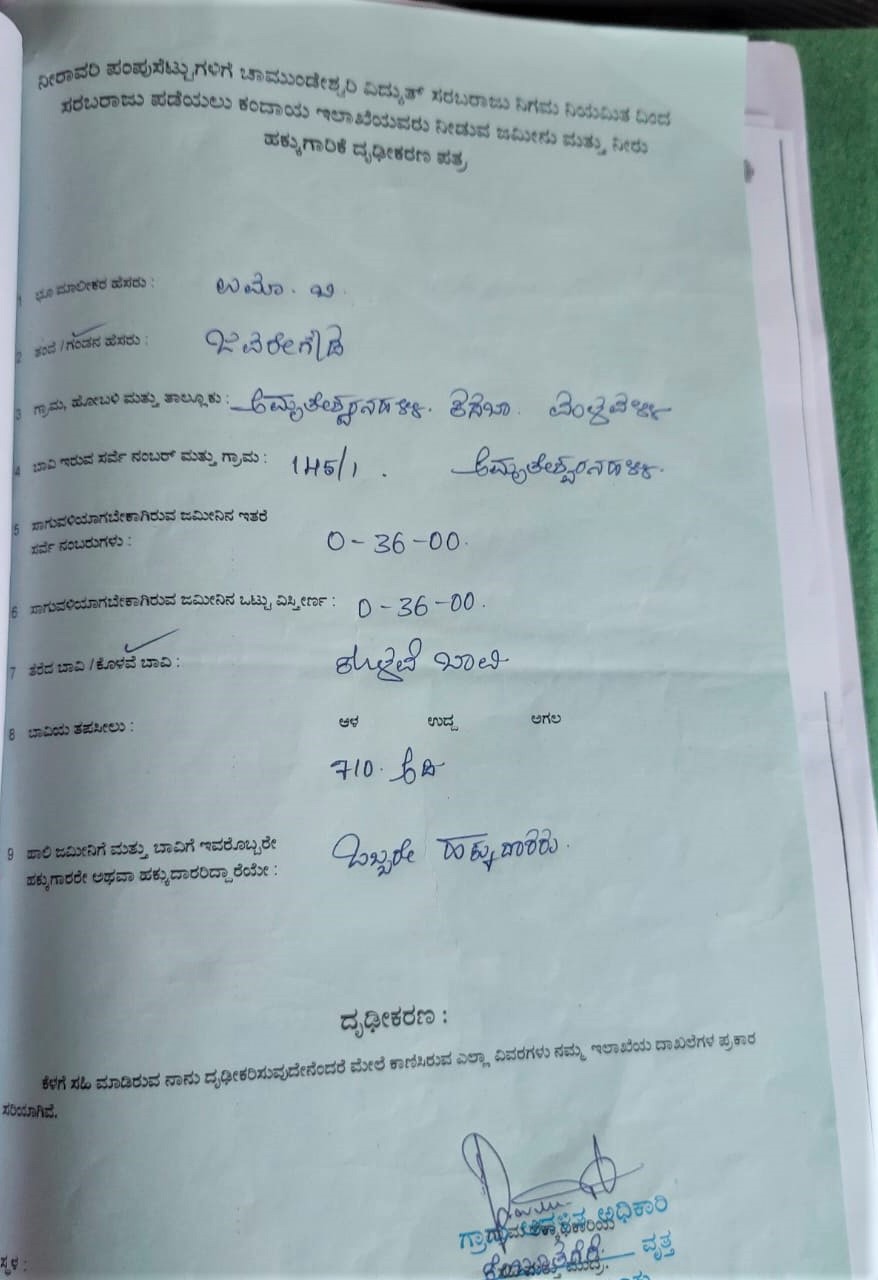 ನೀರಾವರಿ ಪಂಪುಸೆಟ್ಟುಗಳಿಗೆ ಚಾಮುಂಡೇಶ್ವರಿ ವಿದ್ಯುತ್ ಸರಬರಾಜು ನಿಗಮ ನಿಯಮಿತ ದಿಂದ
ಸರಬರಾಜು ಪಡೆಯಲು ಕಂದಾಯ ಇಲಾಖೆಯವರು ನೀಡುವ ಜಮೀನು ಮತ್ತು ನೀರು
ಹಕ್ಕುಗಾರಿಕೆ ದೃಢೀಕರಣ ಪತ್ರ
1 ಭೂ ಮಾಲೀಕರ ಹೆಸರು :
2 ತಂದೆ /ಗಂಡನ ಹೆಸರು : ಜವರೇಗೌಡ
3 ಗ್ರಾಮ, ಹೋಬಳಿ ಮತ್ತು ತಾಲ್ಲೂಕು : ಅಮೃತೇಶ್ವರನಹಳ್ಳಿ. ಕಸಬಾ
4 ಬಾವಿ ಇರುವ ಸರ್ವೆ ನಂಬರ್ ಮತ್ತು ಗ್ರಾಮ : 145/1 . ಅಮೃತೇಶ್ವರನಹಳ್ಳಿ.
5 ಸಾಗುವಳಿಯಾಗಬೇಕಾಗಿರುವ ಜಮೀನಿನ ಇತರೆ
ಸರ್ವೆ ನಂಬರುಗಳು : 0-36-00.
6 ಸಾಗುವಳಿಯಾಗಬೇಕಾಗಿರುವ ಜಮೀನಿನ ಒಟ್ಟು ವಿಸ್ತೀರ್ಣ : 0-36-00.
7 ತೆರೆದ ಬಾವಿ /ಕೊಳವೆ ಬಾವಿ : ಕೊಳವೆ ಬಾವಿ
8 ಬಾವಿಯ ತಪಸೀಲು : ಆಳ ಉದ್ದ ಅಗಲ
710. ಅಡಿ
9 ಹಾಲಿ ಜಮೀನಿಗೆ ಮತ್ತು ಬಾವಿಗೆ ಇವರೊಬ್ಬರೇ
ಹಕ್ಕುಗಾರರೇ ಅಥವಾ ಹಕ್ಕುದಾರರಿದ್ದಾರೆಯೇ : ಒಬ್ಬರೇ ಹಕ್ಕುದಾರರು.
ದೃಢೀಕರಣ :
ಕೆಳಗೆ ಸಹಿ ಮಾಡಿರುವ ನಾನು ದೃಢೀಕರಿಸುವುದೇನೆಂದರೆ ಮೇಲೆ ಕಾಣಿಸಿರುವ ಎಲ್ಲಾ ವಿವರಗಳು ನಮ್ಮ ಇಲಾಖೆಯ ದಾಖಲೆಗಳ ಪ್ರಕಾರ
ಸರಿಯಾಗಿವೆ.
ಅಧಿಕಾರಿ
ವೃತ್ತ
ಸ್ಥಳ :